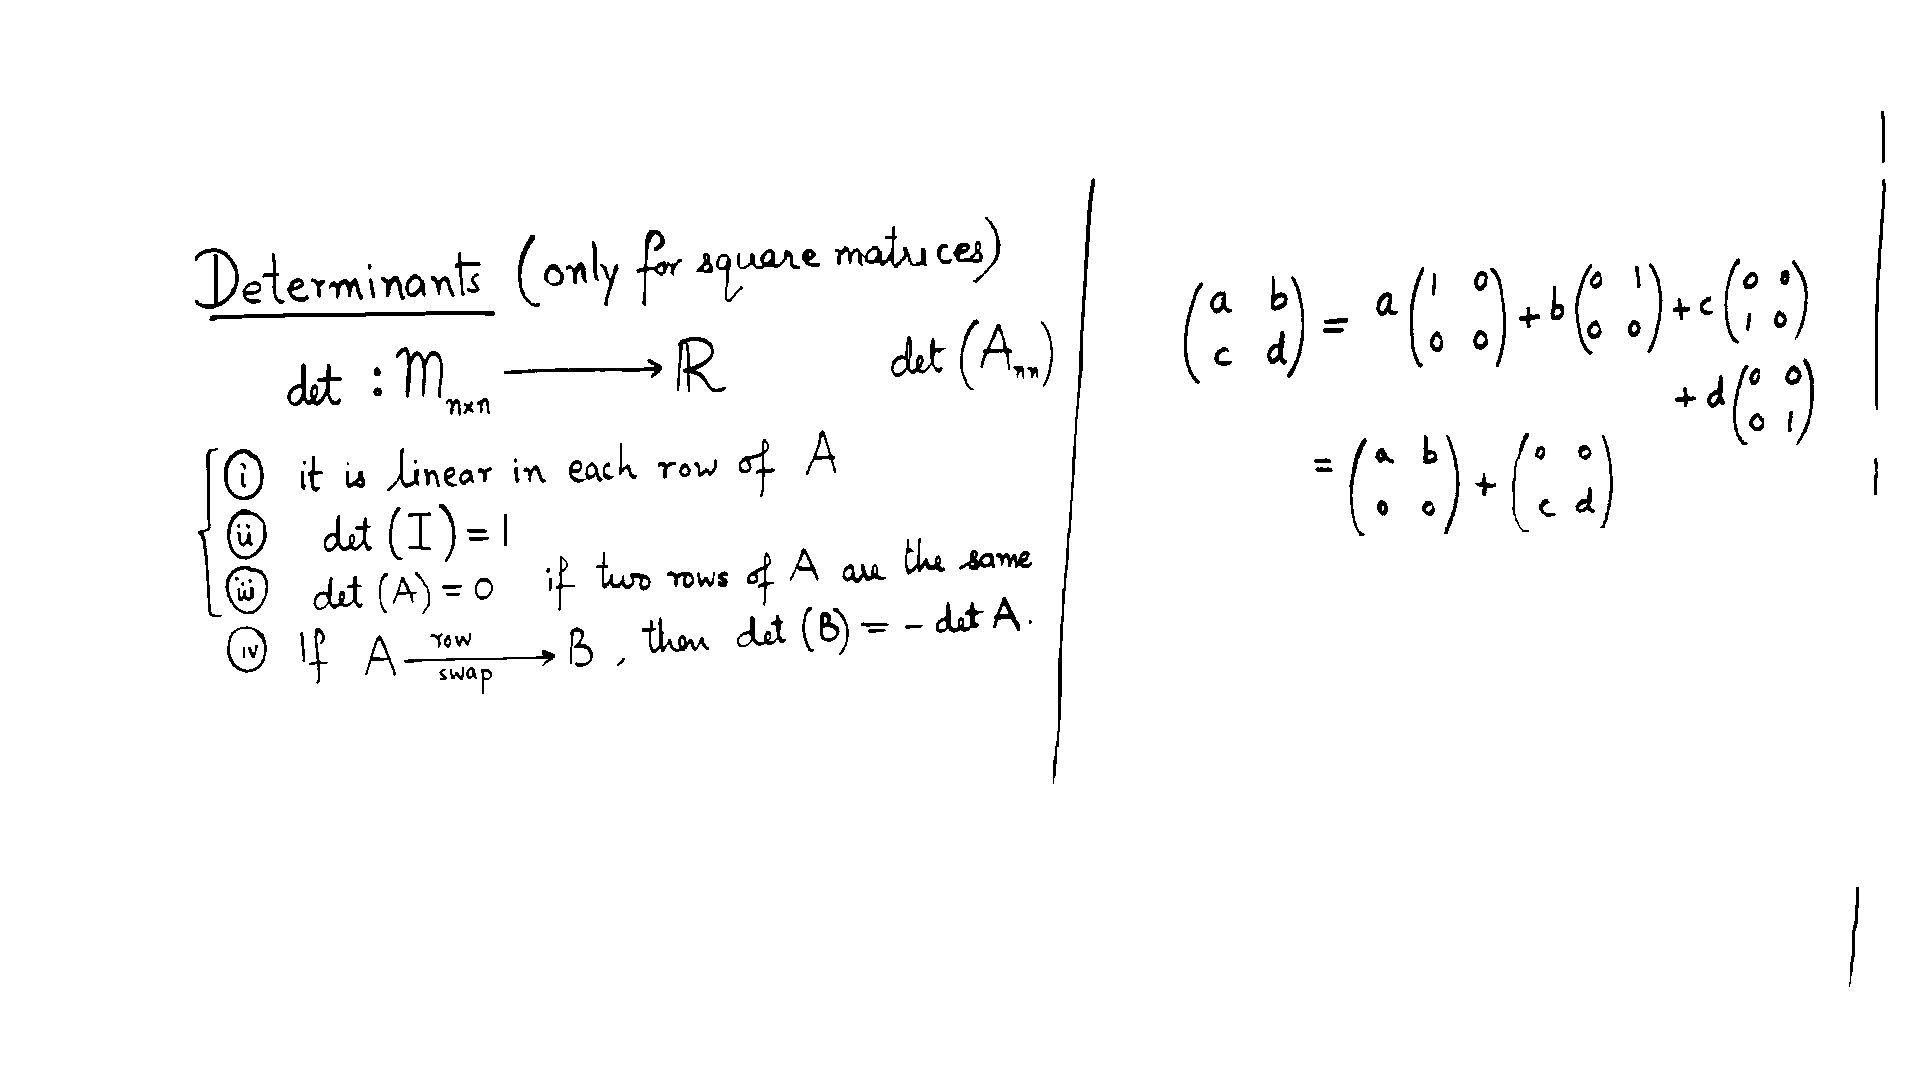 Determinants (only for square matrices)
det : M_{n×n} ⟶ ℝ det (A_{nn})
(i) it is linear in each row of A
(ii) det (I) = 1
(iii) det (A) = 0 if two rows of A are the same
(iv) If A \xrightarrow[swap]{row} B , then det (B) = - det A.
\begin{pmatrix} a & b \\ c & d \end{pmatrix} = a \begin{pmatrix} 1 & 0 \\ 0 & 0 \end{pmatrix} + b \begin{pmatrix} 0 & 1 \\ 0 & 0 \end{pmatrix} + c \begin{pmatrix} 0 & 0 \\ 1 & 0 \end{pmatrix}
+ d \begin{pmatrix} 0 & 0 \\ 0 & 1 \end{pmatrix}
= \begin{pmatrix} a & b \\ 0 & 0 \end{pmatrix} + \begin{pmatrix} 0 & 0 \\ c & d \end{pmatrix}